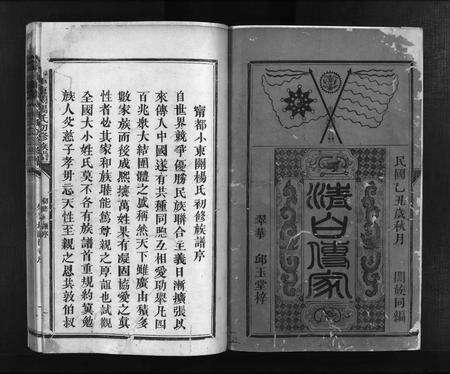 民國乙丑歲秋月
闔族同編
清白傳家
翠華
邱玉堂梓
甯都小東關楊氏初修族譜序
自世界競爭優勝民族聯合主義日漸擴張以
來傳人中國遂有共種同胞互相愛功舉凡四
百兆衆大結團體之感稱然天下雖廣由積多
數家族而後成熙攘萬姓果有凝固協愛之眞
性者必其家和族睦能篤尊親之厚誼也試觀
全國大小姓氏莫不各有族譜首重規約冀勉
族人父慈子孝弗忘天性至親之恩共敦伯叔